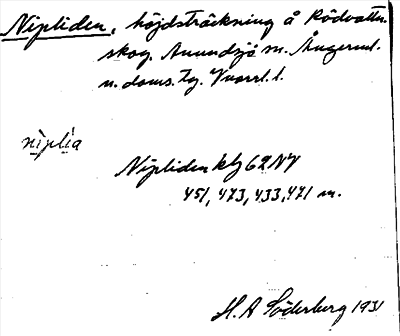 Nipliden, höjdsträckning å Rödvattn.
skog, Anundsjö sn. Ångerml.
n. doms. tg. Vnorrl. l.
nìplìa
Nipliden kbl 62 NV
451, 473, 433, 471 m.
H. A Söderberg 1931